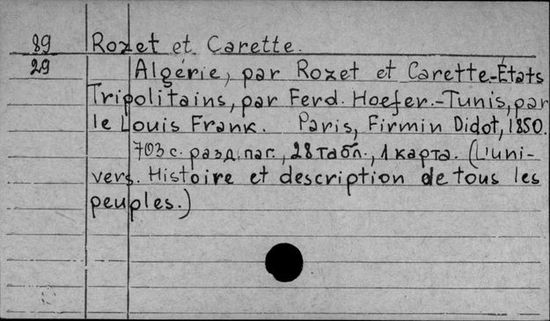 89 Rozet et Carette.
29 Algérie, par Rozet et Carette.-États
Tripolitains, par Ferd. Hoefer.-Tunis, par
le Louis Frank. Paris, Firmin Didot, 1850.
703 с. разд. паг., 28 табл., 1 карта. (L'uni-
vers. Histoire et description de tous les
peuples.)